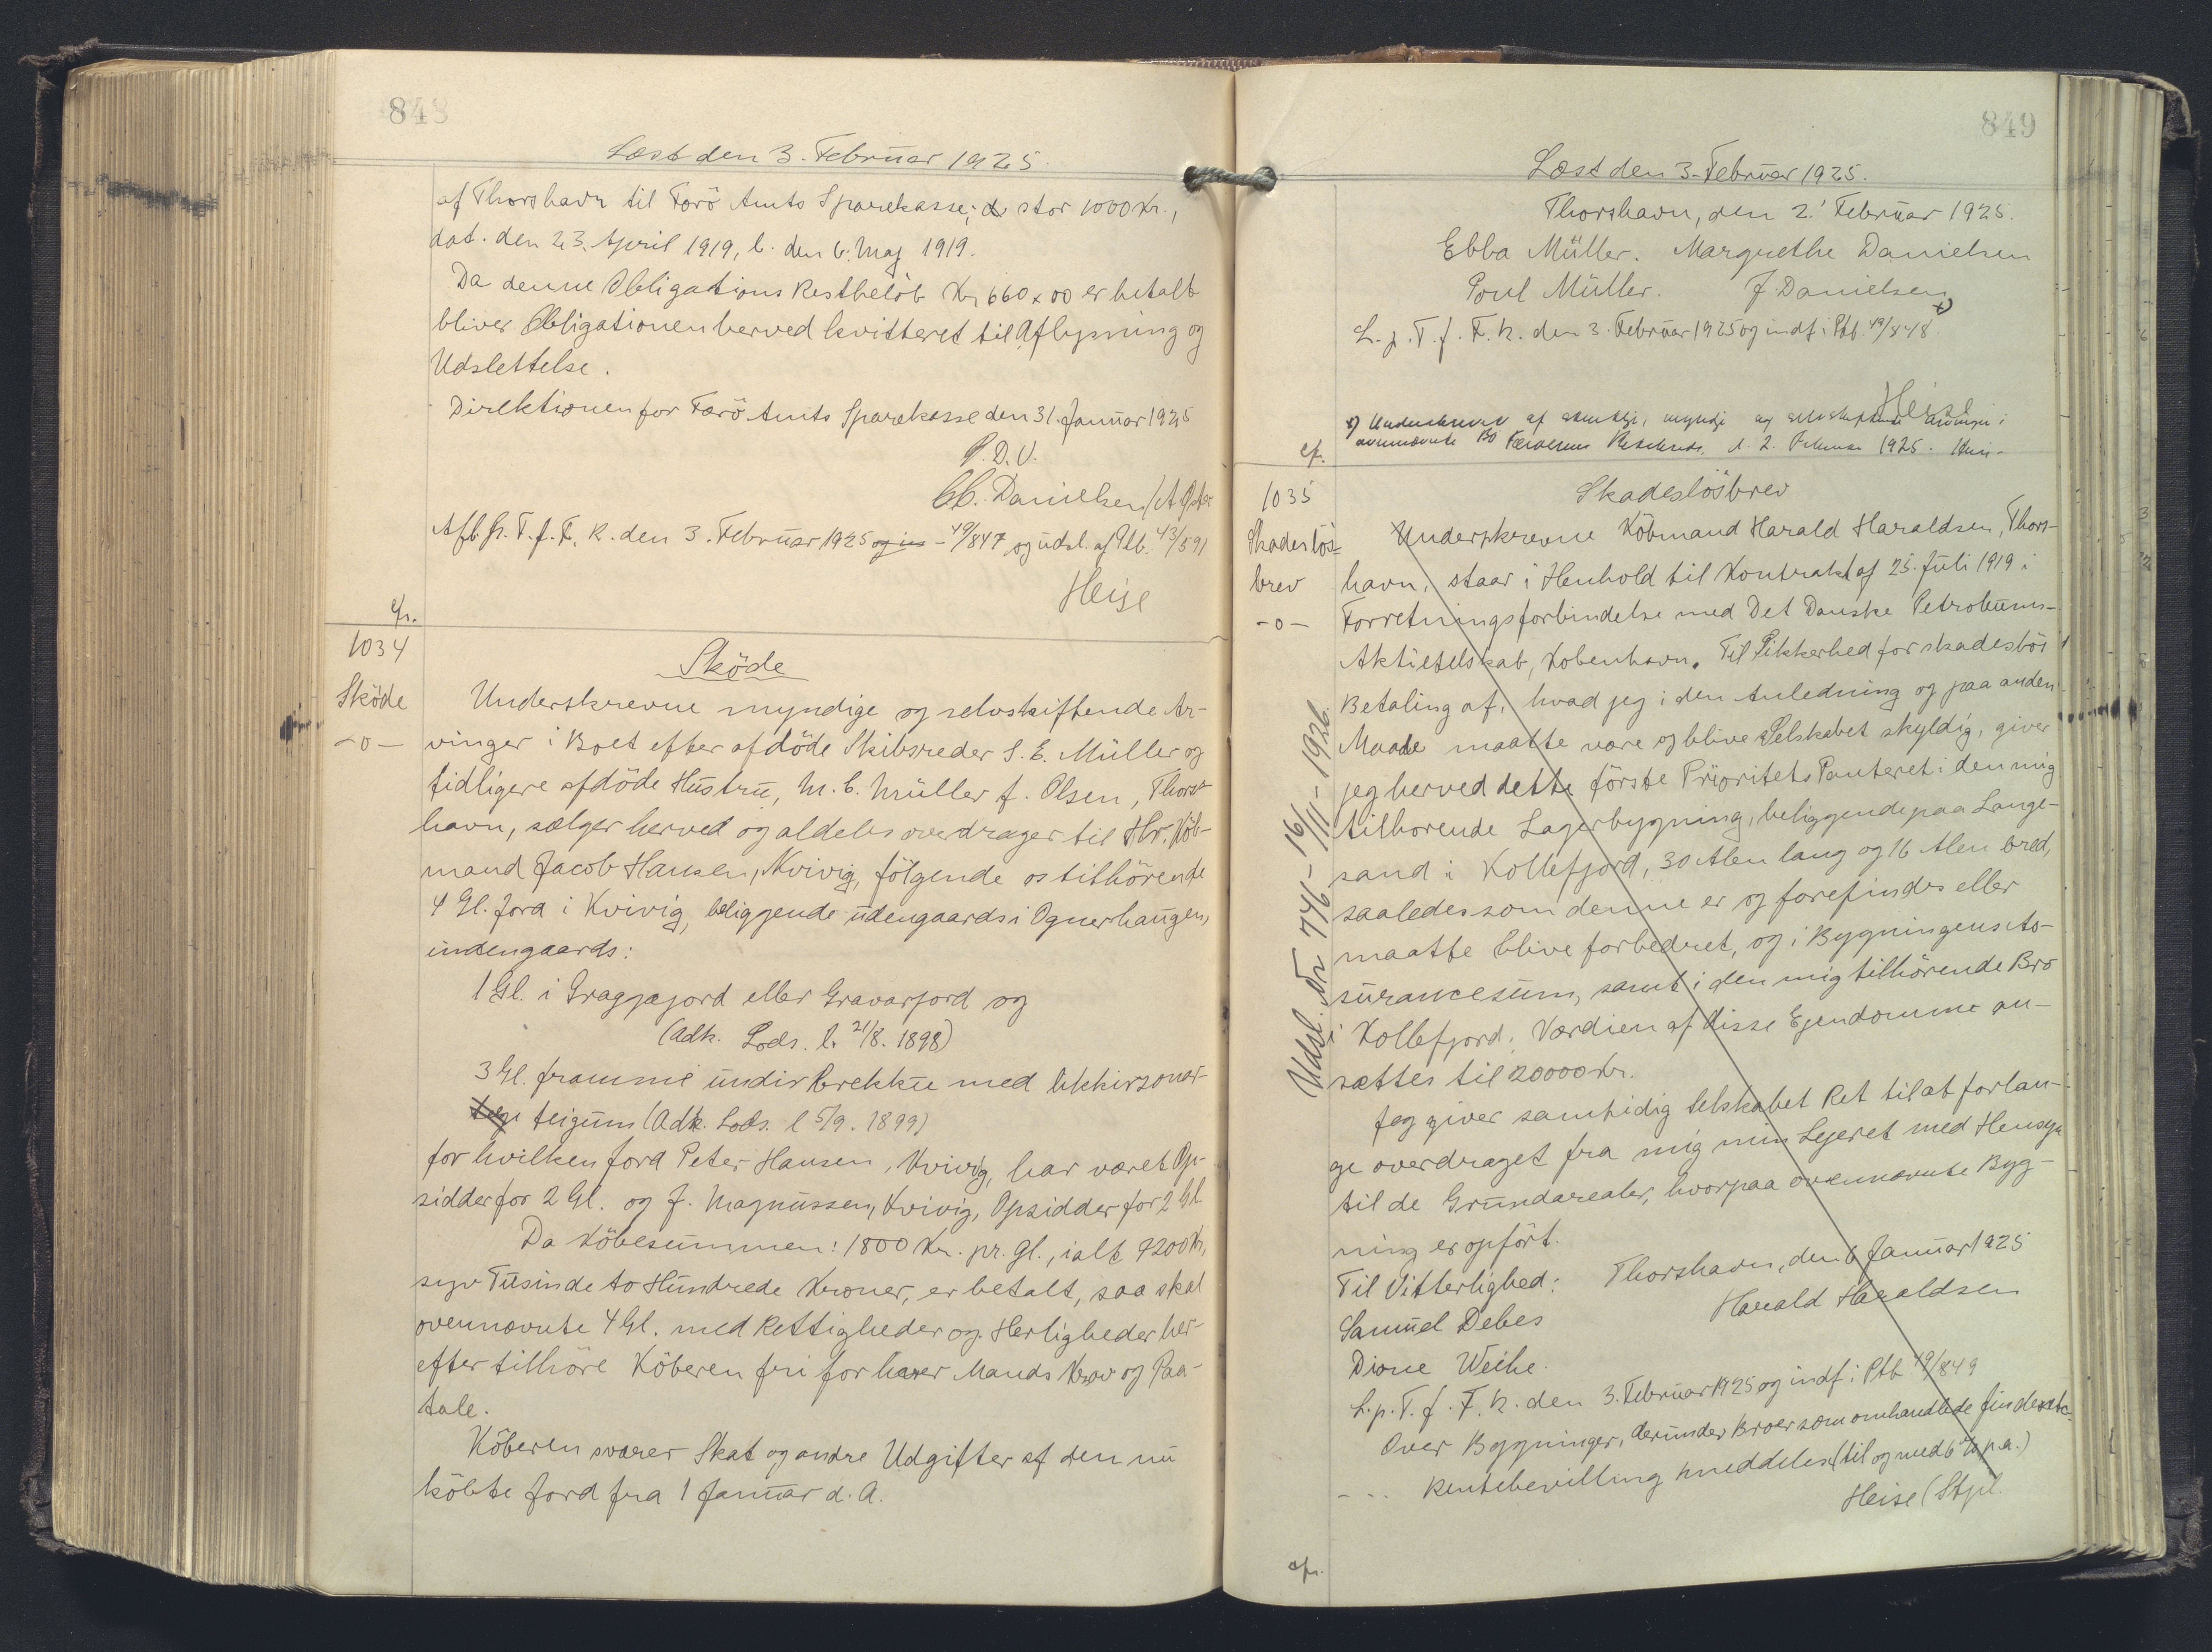 848
Læst den 3. Februar 1925.
af Thorshavn til Færö Amts Sparekasse, stor 1000 Kr.,
dat. den 23. April 1919, l. den 6. Maj 1919.
Da denne Obligations Restbelöb Kr 660 x 00 er betalt
bliver Obligationen herved kvitteret til Aflysning og
Udslettelse.
Direktionen for Færö Amts Sparekasse den 31. Januar 1925
P.D.V.
C.C. Danielsen
Afl. p. T. f. F. K. den 3. Februar 1925 - 49/847 og udsl. af Ptb. 43/591
Heise
cfr.
1034
Sköde
-o-
Sköde
Underskrevne myndige og selvskiftende Ar-
vinger i Boet efter afdöde Skibsreder S. E. Müller og
tidligere afdöde Hustru, M. C. Müller f. Olsen, Thors-
havn, sælger herved og aldeles overdrager til Hr. Köb-
mand Jacob Hansen, Kvivig, fölgende os tilhörende
4 Gl. Jord i Kvivig, beliggende udengaards i Ognerhaugen,
indengaards:
1 Gl. i Gragpajord eller Gravarjord og
(Adk. Lods. l. 21/8. 1898)
3 Gl. frammi undir Brekku med likkirsonar-
teigum (Adk. Lods. l 5/9. 1899)
for hvilken Jord Peter Hansen, Kvivig, har været Op-
sidder for 2 Gl. og J. Magnussen, Kvivig, Opsidder for 2 Gl
Da Köbesummen: 1800 Kr. pr. Gl., ialt 7200 Kr,
syv Tusinde to Hundrede Kroner, er betalt, saa skal
ovennævnte 4 Gl. med Rettigheder og Herligheder her-
efter tilhöre Köberen fri for hver Mands Krav og Paa-
tale.
Köberen svarer Skat og andre Udgifter af den nu
köbte Jord fra 1 Januar d. A.
849
Læst den 3. Februar 1925.
Thorshavn, den 2. Februar 1925.
Ebba Müller. Margrethe Danielsen
Poul Müller. J Danielsen x)
L. p. T. f. F. K. den 3. Februar 1925 og indf. i Ptb. 49/848
Heise
x) Underskrevet af samtlige, myndige og selvskiftende Arvinger i
ovennævnte Bo Færöernes d. 2. Februar 1925. Heise
cfr.
1035
Skadeslös-
brev
-o-
Skadeslösbrev
Underskrevne Köbmand Harald Haraldsen, Thors-
havn, staar i Henhold til Kontrakt af 25. Juli 1919 i
Forretningsforbindelse med Det Danske Petroleums-
Aktieselskab, Köbenhavn. Til Sikkerhed for skadeslös
Betaling af, hvad jeg i den Anledning og paa anden
Maade maatte være og blive Selskabet skyldig, giver
jeg herved dette förste Prioritets Panteret i den mig
tilhörende Lagerbygning, beliggende paa Lange-
sand i Kollefjord, 30 Alen lang og 16 Alen bred,
saaledes som denne er og forefindes eller
maatte blive forbedret, og i Bygningens As-
surancesum, samt i den mig tilhörende Bro
i Kollefjord. Værdien af disse Ejendomme an-
sættes til 20000 Kr.
Jeg giver samtidig Selskabet Ret til at forlan-
ge overdraget fra mig min Lejeret med Hensyn
til de Grundarealer, hvorpaa ovennævnte Byg-
ning er opfört.
Thorshavn, den 6 Januar 1925
Til Vitterlighed:
Harald Haraldsen
Samuel Debes
Dione Weihe.
L. p. T. f. F. K. den 3. Februar 1925 og indf. i Ptb 49/849
Over Bygninger, derunder Broer som omhandlede findes
- - - Rentebevilling meddeles (til og med 6 % p.a.)
Heise (Stpl.
cfr.
Udsl. Nr 746 - 16/11 - 1926.